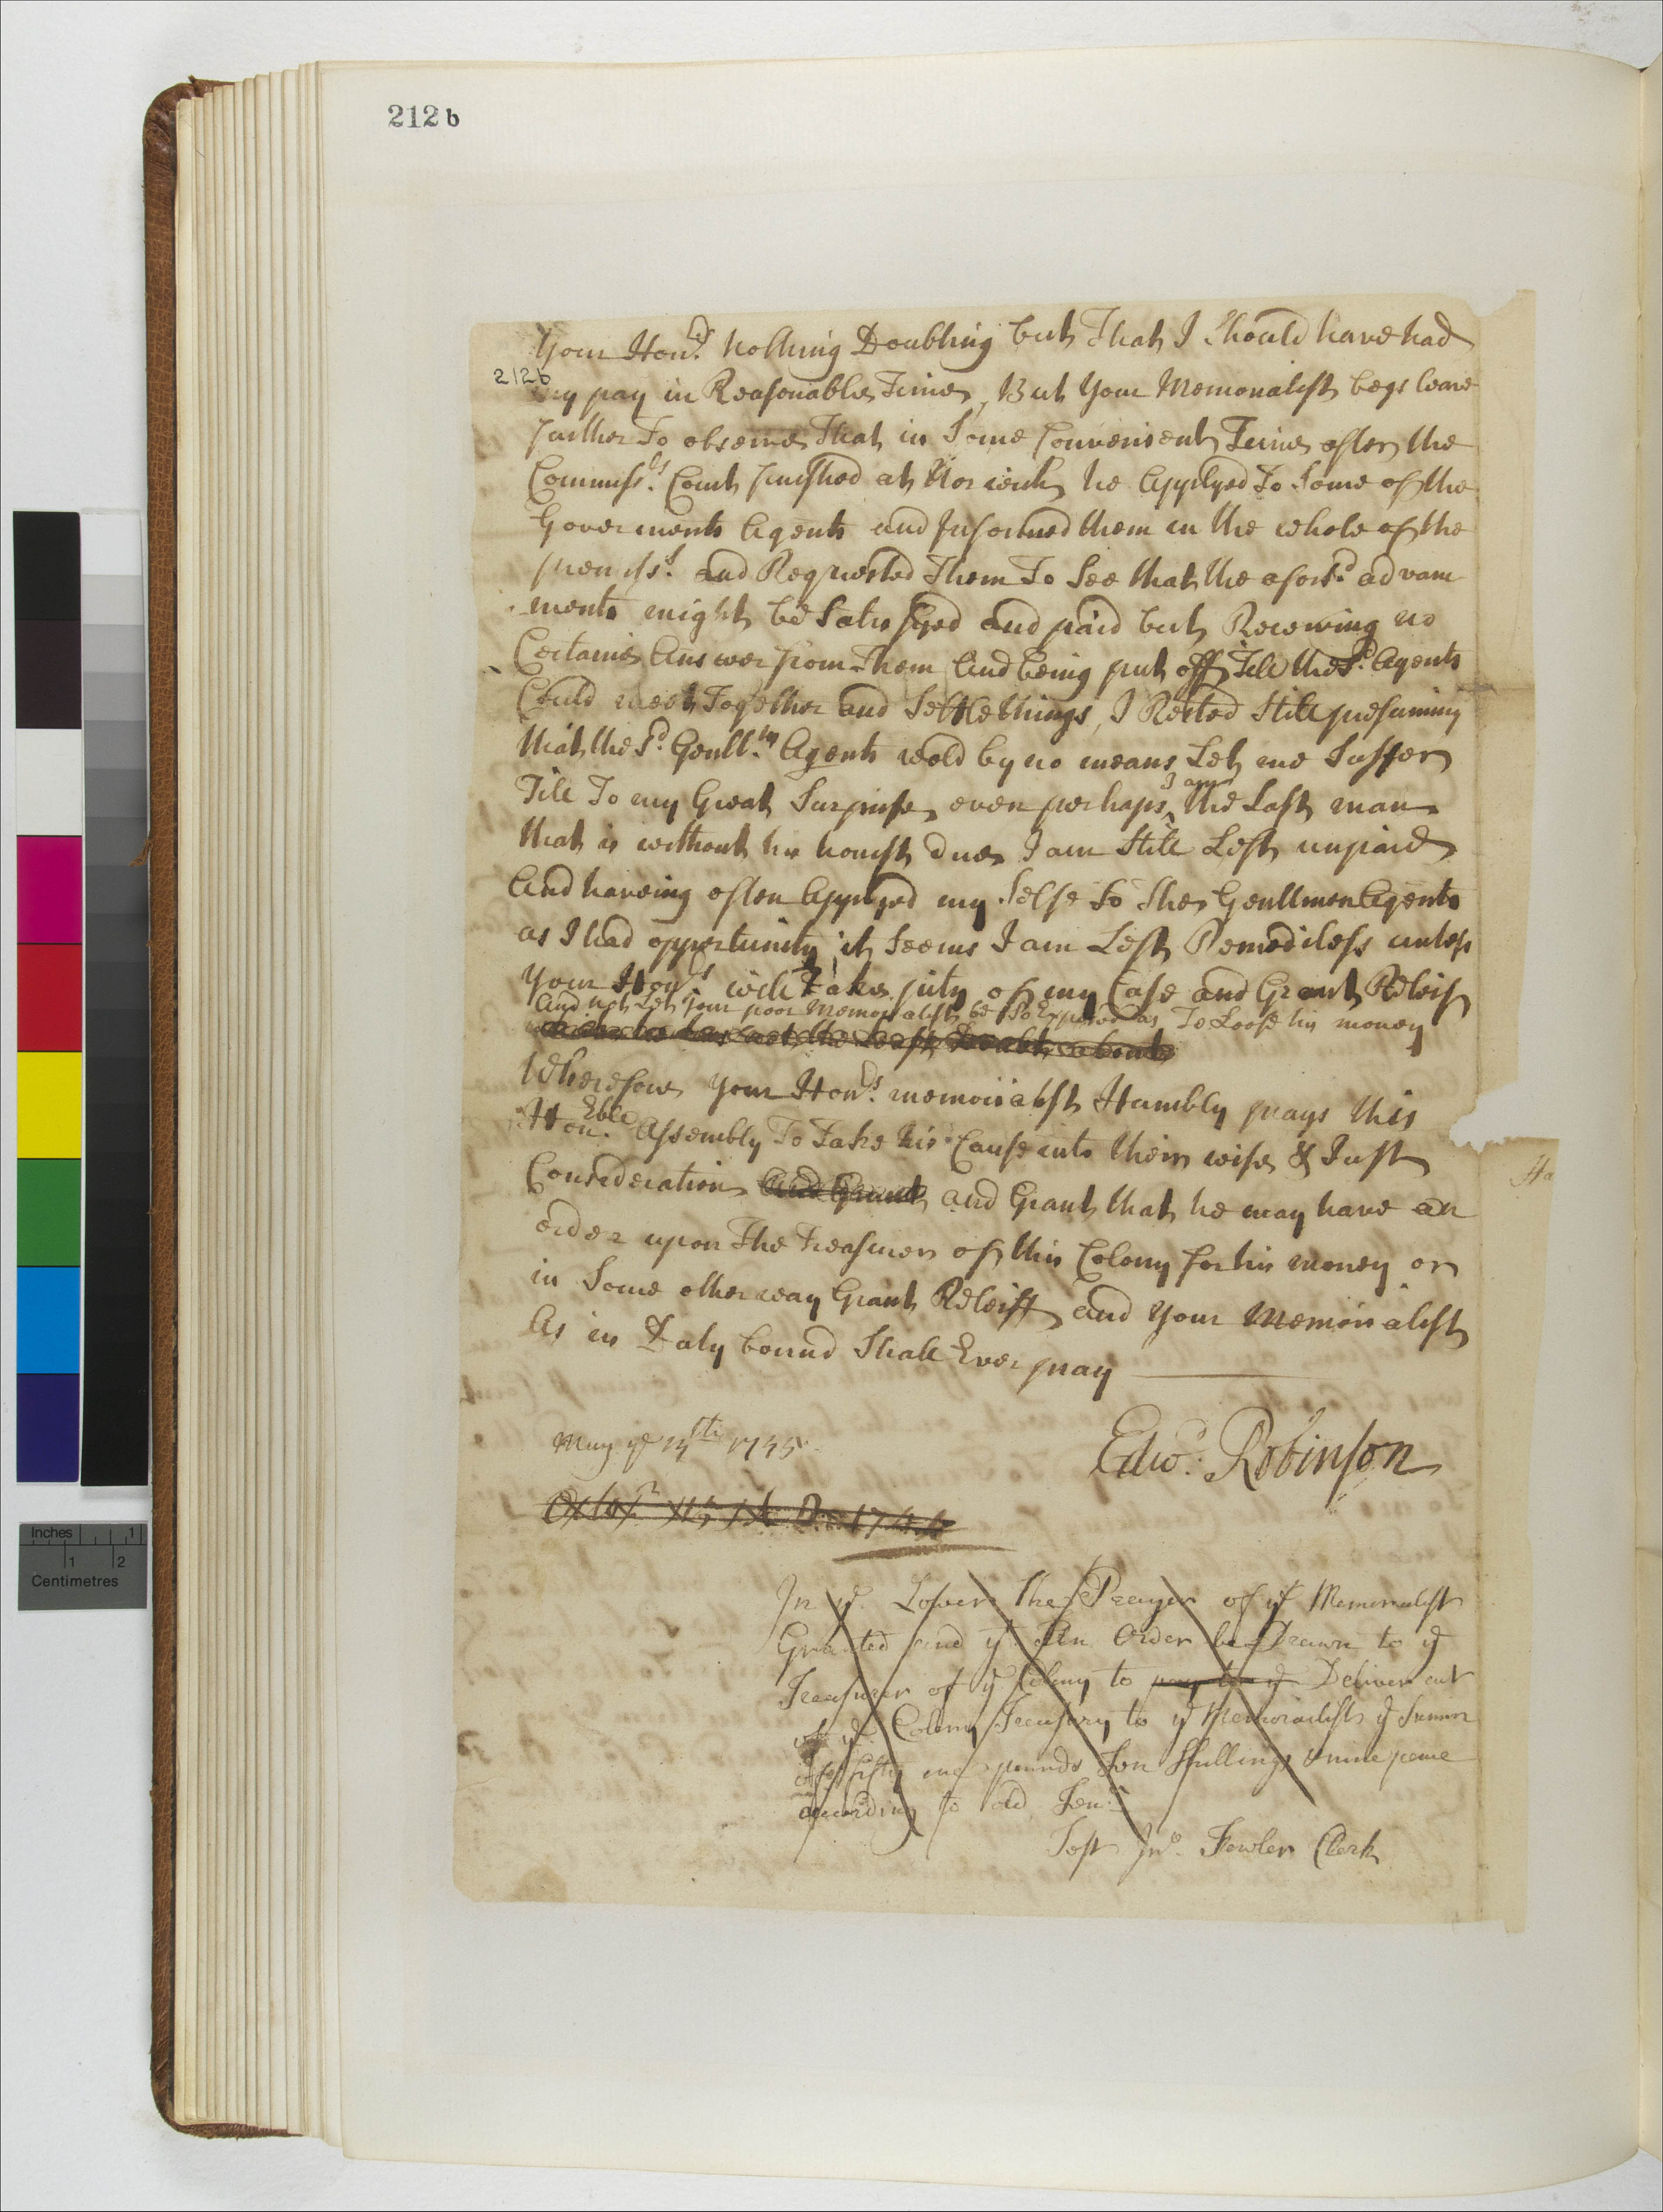 212 b
Your Hon.rs Nothing Doubting but That I Should have had
212b
my pay in Reasonable Time, But Your Memorialist begs leave
further To observe That in Some Convenient Time after the
Commiss.rs Court finished at Norwich he Applyed To Some of the
Goverments Agents and Informed them in the whole of the
premiss.s and Requested Them To See that the afors.d advance
ments might be Satisfyed and paid but Receiving no
Certaine Answer from Them And being put off Till the S.d Agents
Could meet Together and Settle things, I Rested Still presuming
that the S.d Gentl.m Agents wold by no means Let me Suffer
Till To my Great Surprise, even perhaps I am the Last man
that is without his honest due, I am Still Left unpaid
And haveing often Applyed my Selfe to the Gentlmen Agents
as I had opportunity it Seems I am Left Remediless unless
Your Hon.rs will Take pity of my Case and Grant Releif
And not Let your poor Memorialist be So Exposed as To Loose his money
Wherefore Your Hon.rs memorialist Humbly prays this
Hon.Eble Assembly To Take his Cause into their wise & Just
Consideration And Grant and Grant that he may have an
order upon The Treasurer of this Colony for his money or
in Some other way Grant Releiff and Your Memorialist
As in Duty bound Shall Ever pray
May ye 14th 1745
Edw.d Robinson
Octo.r A D. 1744
In ye Lower the Prayer of ye Memorialist
Granted and yt An Order be Drawn to ye
Treasurer of ye Colony to pay to ye Deliver out
of ye Colony Treasury to ye Memorialist ye Summ
of fifty one pounds Ten Shillings & nine pence
according to old Ten.r
Test Jno. Fowler Clerk
Ha
Inches 1
1 2
Centimetres